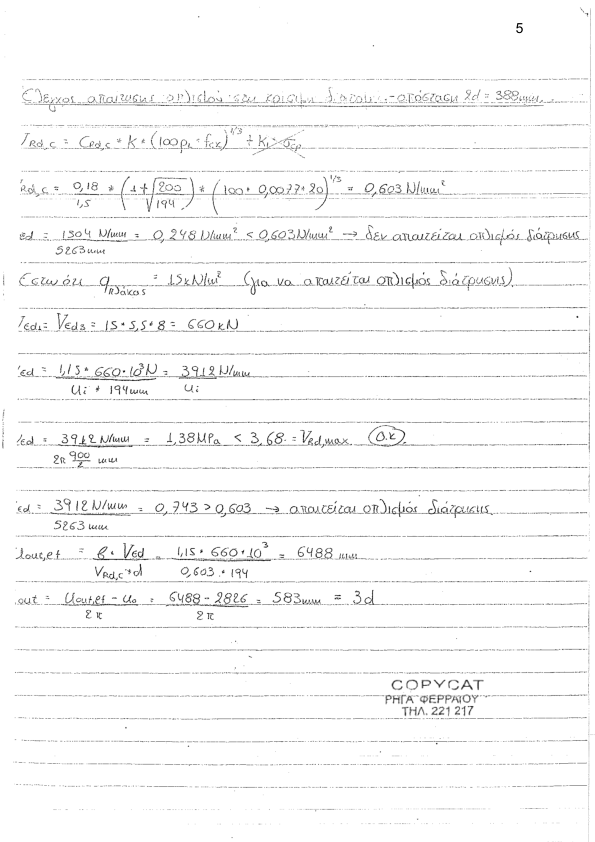 5
Έλεγχος απαίτησης οπλισμού στη κρίσιμη διατομή - απόσταση 2d = 388mm.
τRd,c = CRd,c * K * (100ρl * fck)^1/3 + K1 * σcp
Rd,c = 0,18/1,5 * (1+√200/194) * (100 * 0,0077 * 20)^1/3 = 0,603 N/mm²
ed = 1304 N/mm / 5263 mm = 0,248 N/mm² < 0,603 N/mm² → δεν απαιτείται οπλισμός διάτρησης
Έστω ότι qπλάκας = 15 kN/m² (για να απαιτείται οπλισμός διάτρησης)
VEd3 = 15 * 5,5 * 8 = 660 kN
Ed = 1,15 * 660 * 10³ N / Ui * 194mm = 3912 N/mm / Ui
Ed = 3912 N/mm / 2π 900/2 mm = 1,38 MPa < 3,68 = VRd,max (O.K)
Ed = 3912 N/mm / 5263 mm = 0,743 > 0,603 → απαιτείται οπλισμός διάτρησης
Uout,ef = β * VEd / VRd,c * d = 1,15 * 660 * 10³ / 0,603 * 194 = 6488 mm
out = Uout,ef - U0 / 2π = 6488 - 2826 / 2π = 583 mm = 3d
COPYCAT
ΡΗΓΑ ΦΕΡΡΑΙΟΥ
ΤΗΛ. 221 217